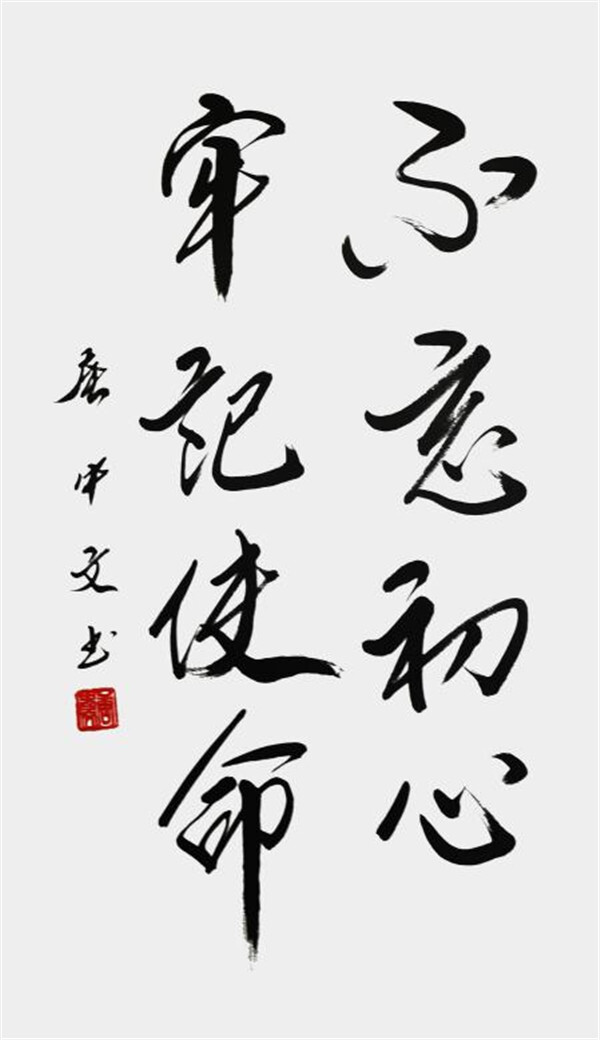 不忘初心
牢记使命
唐中文书